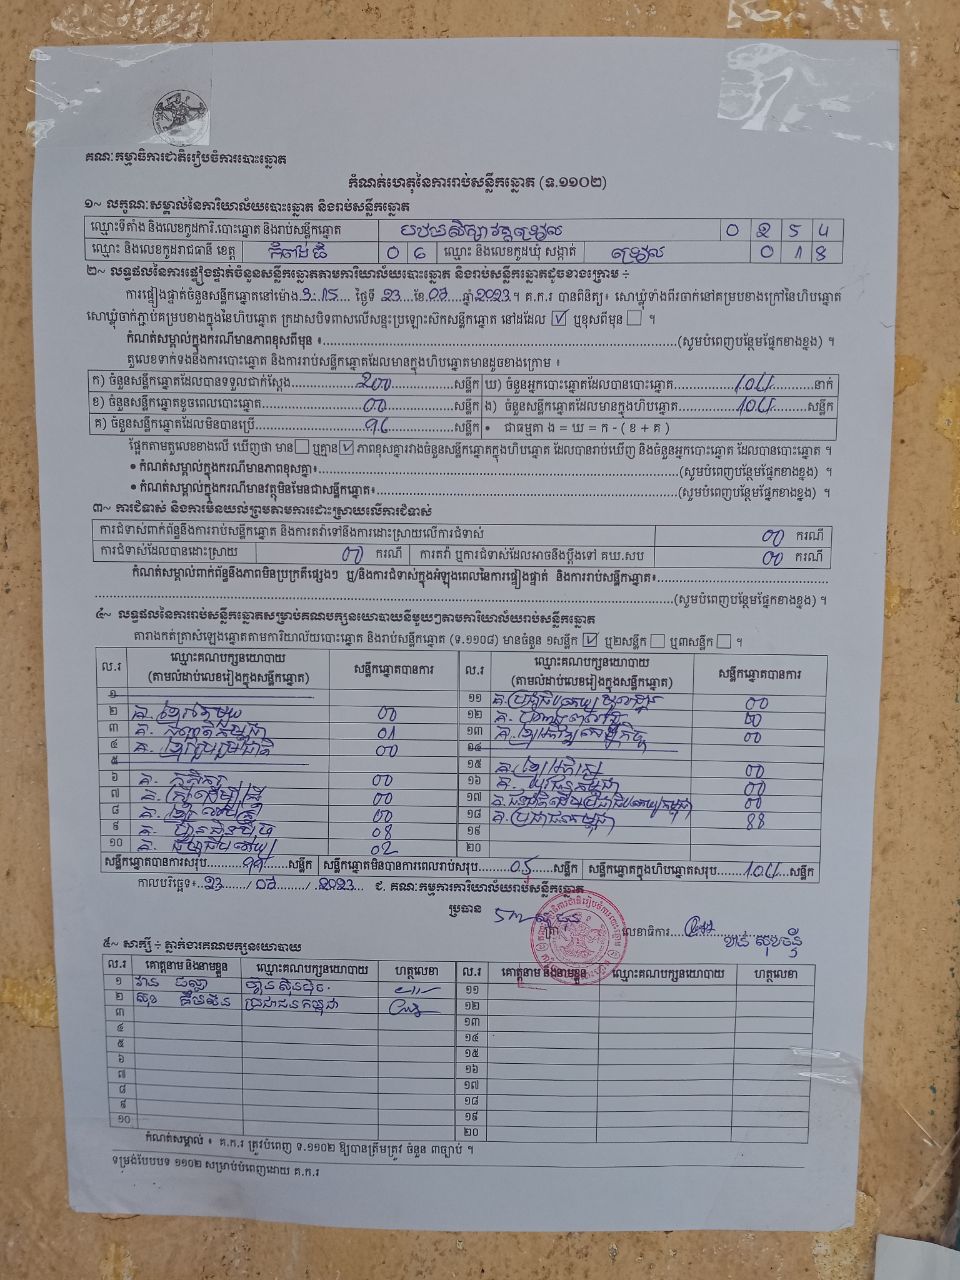 គណៈកម្មាធិការជាតិរៀបចំការបោះឆ្នោត
កំណត់ហេតុនៃការរាប់សន្លឹកឆ្នោត (ទ.១១០២)
១~ លក្ខណៈសម្គាល់នៃការិយាល័យបោះឆ្នោត និងរាប់សន្លឹកឆ្នោត
ឈ្មោះទីតាំង និងលេខកូដការិ.បោះឆ្នោត និងរាប់សន្លឹកឆ្នោត 0 2 5 4
ឈ្មោះ និងលេខកូដរាជធានី ខេត្ត កំពង់ធំ 0 6 ឈ្មោះ និងលេខកូដឃុំ សង្កាត់ ទ្រៀល 0 1 8
២~ លទ្ធផលនៃការផ្ទៀងផ្ទាត់ចំនួនសន្លឹកឆ្នោតតាមការិយាល័យបោះឆ្នោត និងរាប់សន្លឹកឆ្នោតដូចខាងក្រោម ÷
ការផ្ទៀងផ្ទាត់ចំនួនសន្លឹកឆ្នោតនៅម៉ោង 3:15 ថ្ងៃទី 23 ខែ 07 ឆ្នាំ 2023 ។ គ.ក.រ បានពិនិត្យ៖ សោឃ្លុំទាំងពីរចាក់នៅគម្របខាងក្រៅនៃហិបឆ្នោត
សោឃ្លុំចាក់ភ្ជាប់គម្របខាងក្នុងនៃហិបឆ្នោត ក្រដាសបិទពាសលើសន្ទះប្រឡោះស៊កសន្លឹកឆ្នោត នៅដដែល ☑ ឬខុសពីមុន ☐ ។
កំណត់សម្គាល់ក្នុងករណីមានភាពខុសពីមុន ៖ (សូមបំពេញបន្ថែមផ្នែកខាងខ្នង) ។
តួលេខទាក់ទងនឹងការបោះឆ្នោត និងការរាប់សន្លឹកឆ្នោតដែលមានក្នុងហិបឆ្នោតមានដូចខាងក្រោម ៖
ក) ចំនួនសន្លឹកឆ្នោតដែលបានទទួលជាក់ស្ដែង 200 សន្លឹក ឃ) ចំនួនអ្នកបោះឆ្នោតដែលបានបោះឆ្នោត 104 នាក់
ខ) ចំនួនសន្លឹកឆ្នោតខូចពេលបោះឆ្នោត 00 សន្លឹក ង) ចំនួនសន្លឹកឆ្នោតដែលមានក្នុងហិបឆ្នោត 104 សន្លឹក
គ) ចំនួនសន្លឹកឆ្នោតដែលមិនបានប្រើ 96 សន្លឹក • ជាធម្មតា ង = ឃ = ក - ( ខ + គ )
ផ្អែកតាមតួលេខខាងលើ ឃើញថា មាន ☐ ឬគ្មាន ☑ ភាពខុសគ្នារវាងចំនួនសន្លឹកឆ្នោតក្នុងហិបឆ្នោត ដែលបានរាប់ឃើញ និងចំនួនអ្នកបោះឆ្នោត ដែលបានបោះឆ្នោត ។
• កំណត់សម្គាល់ក្នុងករណីមានភាពខុសគ្នា៖ (សូមបំពេញបន្ថែមផ្នែកខាងខ្នង) ។
• កំណត់សម្គាល់ក្នុងករណីមានវត្ថុមិនមែនជាសន្លឹកឆ្នោត៖ (សូមបំពេញបន្ថែមផ្នែកខាងខ្នង) ។
៣~ ការជំទាស់ និងការមិនយល់ព្រមតាមការដោះស្រាយលើការជំទាស់
ការជំទាស់ពាក់ព័ន្ធនឹងការរាប់សន្លឹកឆ្នោត និងការតវ៉ាទៅនឹងការដោះស្រាយលើការជំទាស់ 00 ករណី
ការជំទាស់ដែលបានដោះស្រាយ 00 ករណី ការតវ៉ា ឬការជំទាស់ដែលអាចនឹងប្តឹងទៅ គឃ.សប 00 ករណី
កំណត់សម្គាល់ពាក់ព័ន្ធនឹងភាពមិនប្រក្រតីផ្សេងៗ ឬ/និងការជំទាស់ក្នុងអំឡុងពេលនៃការផ្ទៀងផ្ទាត់ និងការរាប់សន្លឹកឆ្នោត៖
(សូមបំពេញបន្ថែមផ្នែកខាងខ្នង) ។
៤~ លទ្ធផលនៃការរាប់សន្លឹកឆ្នោតសម្រាប់គណបក្សនយោបាយនីមួយៗតាមការិយាល័យរាប់សន្លឹកឆ្នោត
តារាងកត់ត្រាសំឡេងឆ្នោតតាមការិយាល័យបោះឆ្នោត និងរាប់សន្លឹកឆ្នោត (ទ.១១០៨) មានចំនួន ១សន្លឹក ☑ ឬ២សន្លឹក ☐ ឬ៣សន្លឹក ☐ ។
ល.រ ឈ្មោះគណបក្សនយោបាយ (តាមលំដាប់លេខរៀងក្នុងសន្លឹកឆ្នោត) សន្លឹកឆ្នោតបានការ ល.រ ឈ្មោះគណបក្សនយោបាយ (តាមលំដាប់លេខរៀងក្នុងសន្លឹកឆ្នោត) សន្លឹកឆ្នោតបានការ
១ ១១ 00
២ គ. ខ្មែរតែមួយ 00 ១២ 00
៣ គ. កម្ពុជា 01 ១៣ គ. ខ្មែរអភិវឌ្ឍសេដ្ឋកិច្ច 00
៤ គ. ខ្មែររួបរួមជាតិ 00 ១៤
៥ ១៥ 00
៦ គ. កសិករ 00 ១៦ គ. យុវជនកម្ពុជា 00
៧ 00 ១៧ 00
៨ 00 ១៨ គ. ប្រជាជនកម្ពុជា 88
៩ គ. ហ៊្វុនស៊ិនប៉ិច 08 ១៩
១០ 02 ២០
សន្លឹកឆ្នោតបានការសរុប 99 សន្លឹក សន្លឹកឆ្នោតមិនបានការពេលរាប់សរុប 05 សន្លឹក សន្លឹកឆ្នោតក្នុងហិបឆ្នោតសរុប 104 សន្លឹក
កាលបរិច្ឆេទ៖ 23 / 07 / 2023 ជ. គណៈកម្មការការិយាល័យរាប់សន្លឹកឆ្នោត
ប្រធាន លេខាធិការ
៥~ សាក្សី ÷ ភ្នាក់ងារគណបក្សនយោបាយ
ល.រ គោត្តនាម និងនាមខ្លួន ឈ្មោះគណបក្សនយោបាយ ហត្ថលេខា ល.រ គោត្តនាម និងនាមខ្លួន ឈ្មោះគណបក្សនយោបាយ ហត្ថលេខា
១ ហ៊្វុនស៊ិនប៉ិច ១១
២ ប្រជាជនកម្ពុជា ១២
៣ ១៣
៤ ១៤
៥ ១៥
៦ ១៦
៧ ១៧
៨ ១៨
៩ ១៩
១០ ២០
កំណត់សម្គាល់ ៖ គ.ក.រ ត្រូវបំពេញ ទ.១១០២ ឱ្យបានត្រឹមត្រូវ ចំនួន ៣ច្បាប់ ។
ទម្រង់បែបបទ ១១០២ សម្រាប់បំពេញដោយ គ.ក.រ